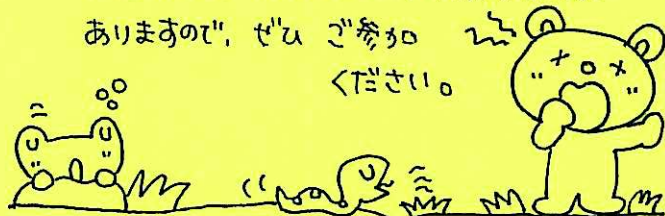 ありますので、ぜひ ご参加
ください。